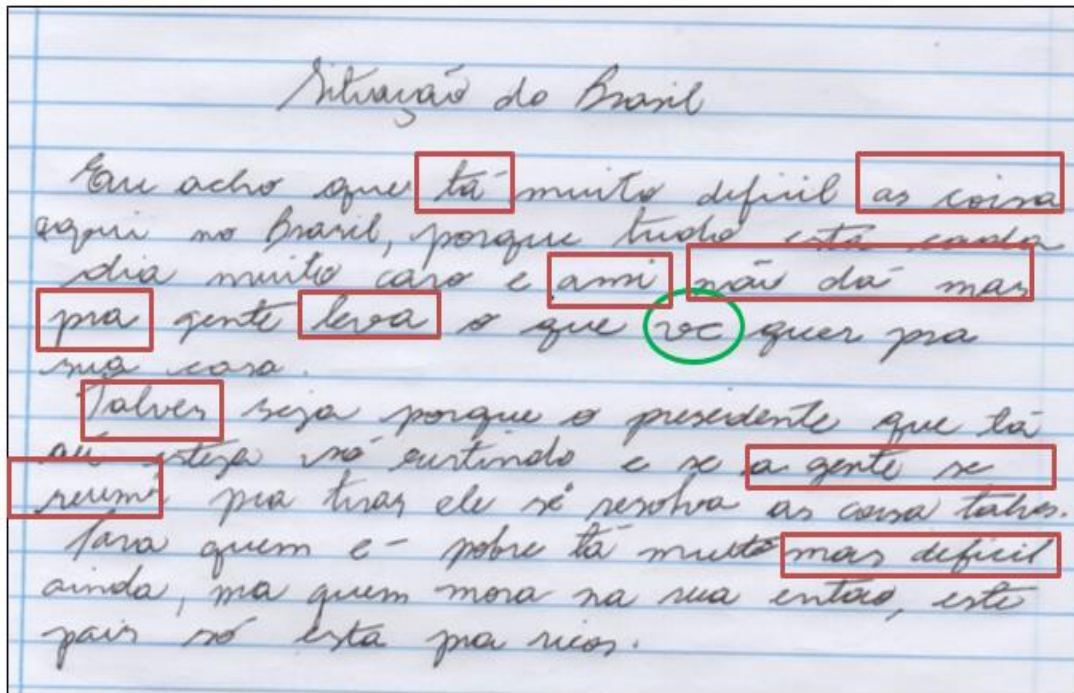 Situação do Brasil
Eu acho que tá muito deficil as coisa
aqui no Brasil, porque tudo está cada
dia muito caro e ami não dá mas
pra gente leva o que vc quer pra
sua casa.
Talves seja porque o presedente que tá
aí esteja só curtindo e se a gente se
reumi pra tirar ele se resolva as coisa talves.
Para quem é pobre tá muito mas deficil
ainda, ma quem mora na rua então, este
pais só esta pra ricos.